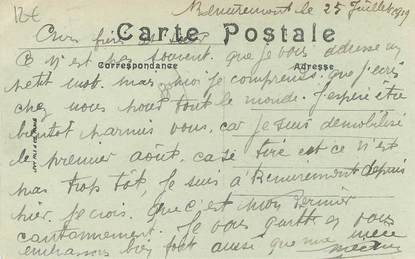 Remiremont le 25 Juillet 1919
Carte Postale
Correspondance Adresse
Chers frère et
n'est pas souvent. que je vous adresse un
petit mot. mais moi je comprends. que j'écris
chez nous pour tout le monde. J'espère être
bientot parmis vous, car je suis demobilisé
le premier août. ca sé tiré est ce n'est
pas trop tôt, Je suis a Remiremont depuis
hier. Je crois. Que c'est mon dernier
cantonnement. Je vous quitte en vous
embrassan bien fort aussi que ma